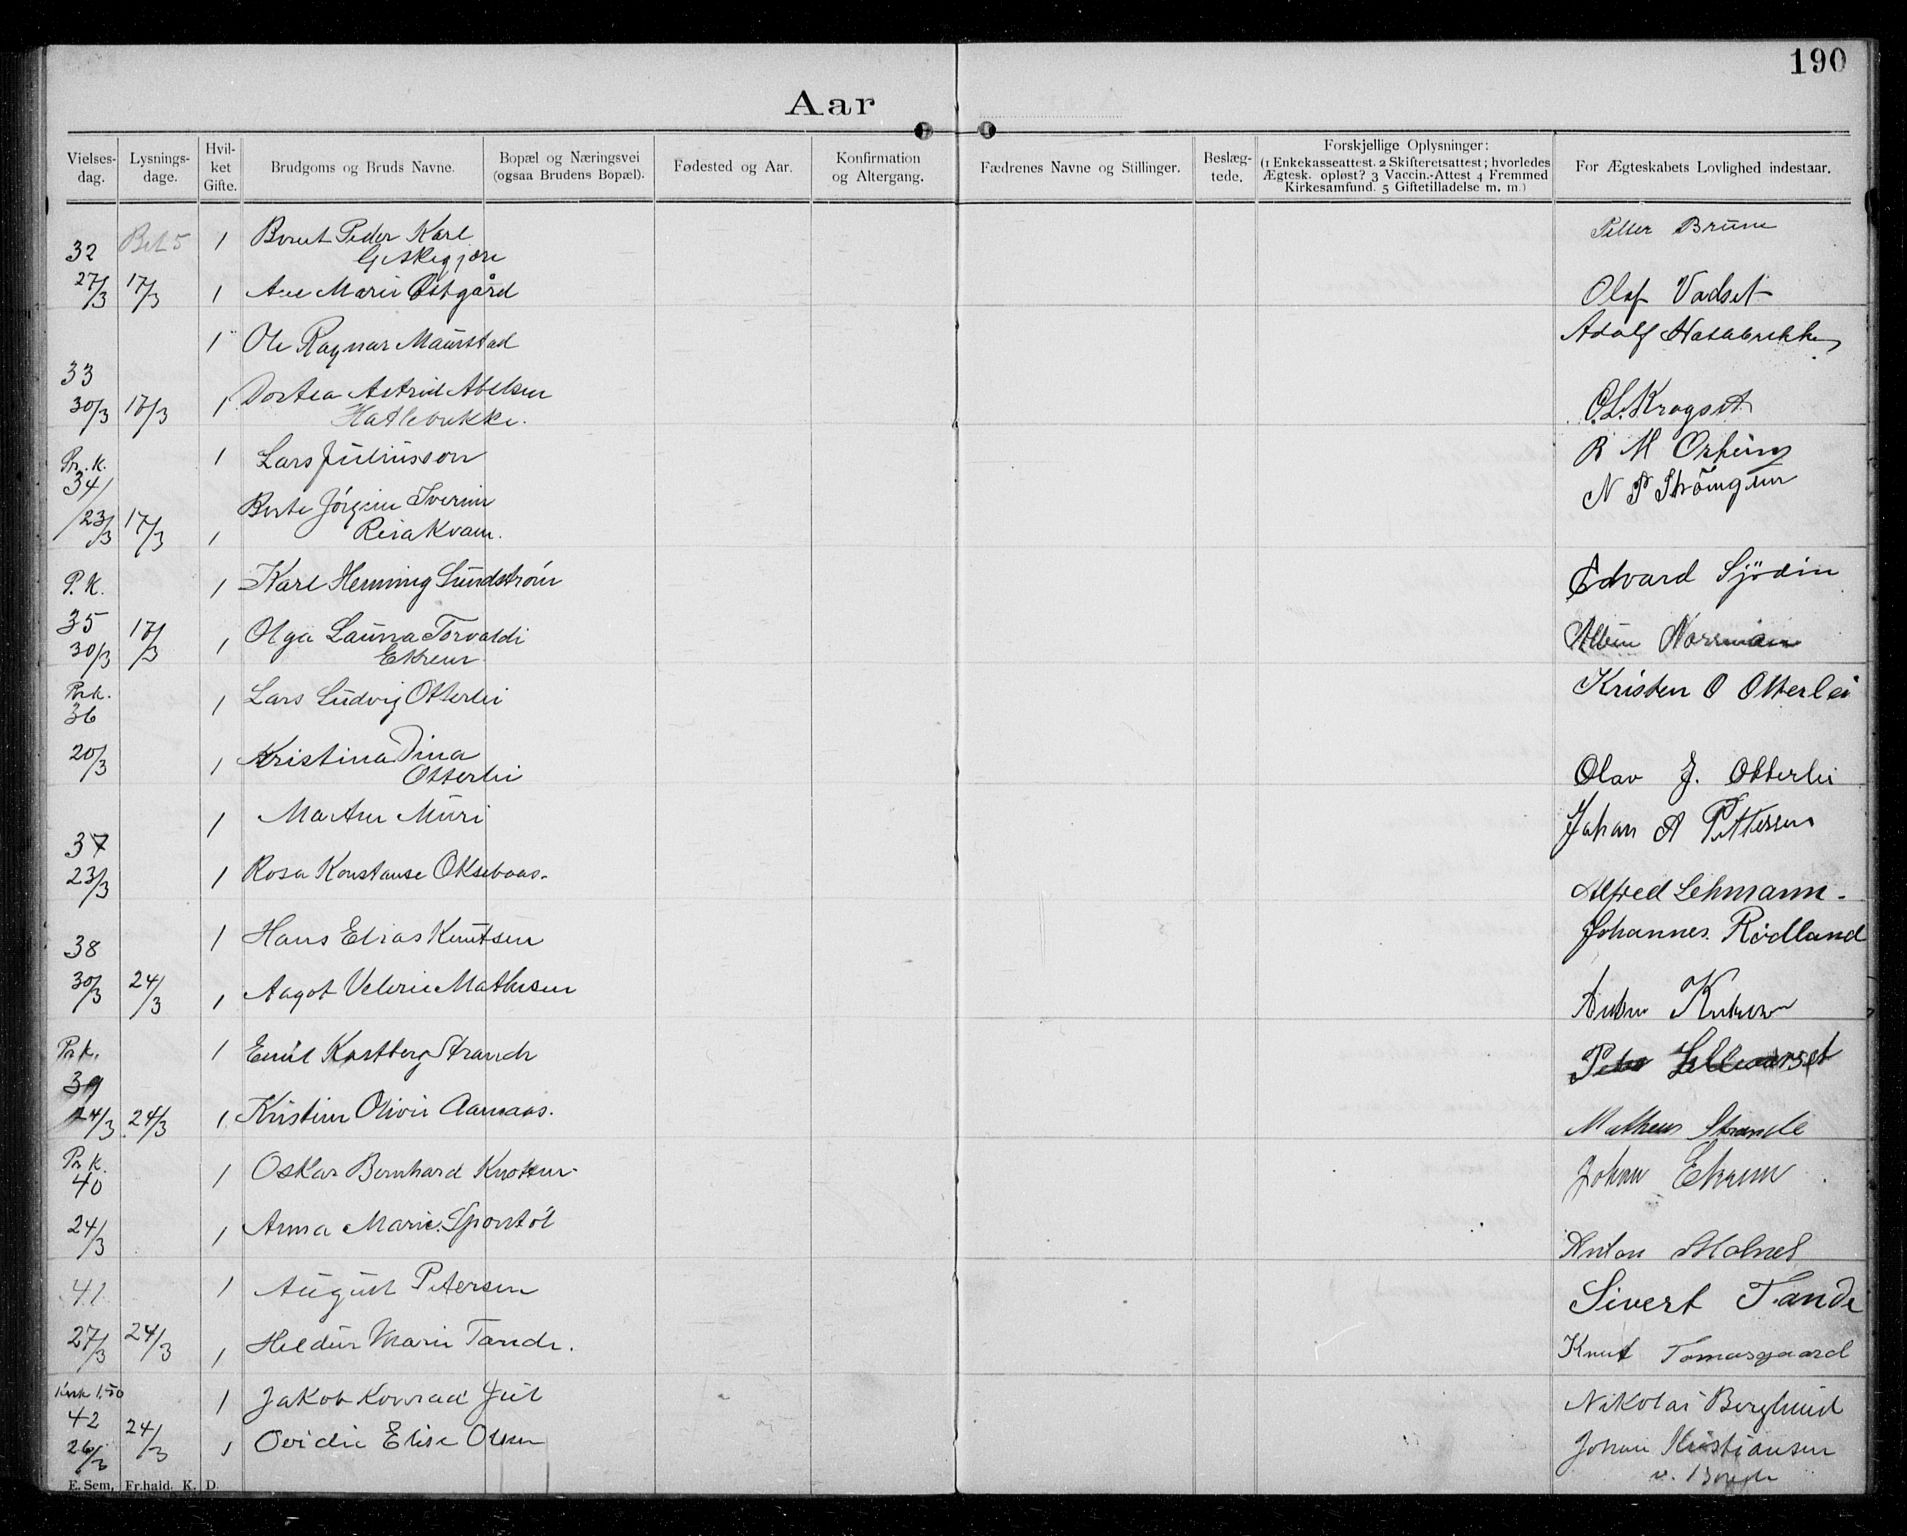 190
Aar
Vielses-dag. Lysnings-dage. Hvil-ket Gifte. Brudgoms og Bruds Navne. Bopæl og Næringsvei (ogsaa Brudens Bopæl). Fødested og Aar. Konfirmation og Altergang. Fædrenes Navne og Stillinger. Beslæg-tede. Forskjellige Oplysninger: (1 Enkekasseattest. 2 Skifteretsattest; hvorledes Ægtesk. opløst? 3 Vaccin.-Attest 4 Fremmed Kirkesamfund. 5 Giftetilladelse m. m.) For Ægteskabets Lovlighed indestaar.
32 Bet 5 1 Bernt Peder Karl Petter Brune
Giskegjære
27/3 17/3 1 Ane Marie Østgård Olaf Vadset
1 Ole Ragnar Maurstad Adolf Hatlebrekke
33
30/3 17/3 1 Dortea Astrid Abelsen O.L. Krogset
Hatlebrekke.
Pr. k. 1 Lars Juliusson R M
34 Berte Jørgine Iverine N P
23/3 17/3 1 Reiakvam.
P. K. 1 Karl Henning Sundström Edvard Sjödin
35 17/3 1 Olga Launa Torvaldi Albin Norrman
30/3 Ekrem
Prk. 1 Lars Ludvig Otterlei Kristen O Otterlei
36
20/3 1 Kristina Dina
Otterlei Olav J. Otterlei
1 Martin Muri Johan A Pettersen
37
23/3 1 Rosa Konstanse Oksebaas. Alfred Lehmann.
38 1 Hans Elias Knutsen Johannes Rödland
30/3 24/3 1 Aagot Valerie Mathisen Anton Knutsen
Prk. 1 Emil Kastberg Strande Peter Lillevarset
39
24/3 24/3 1 Kristine Olivie Aarnaas. Matheus Strande
Pr k. 1 Oskar Bernhard Knotten Johan Ekrem
40
24/3 1 Anna Marie Sponstöl Anton Molnes
41 1 August Petersen Sivert Tande
27/3 24/3 1 Heldur Marie Tande. Knut Tomasgaard
Kirk 1,50 1 Jakob Konrad Jul Nikolai Berglund
42
26/3 24/3 1 Ovidie Elise Olsen Johan Kristiansen
E. Sem, Fr.hald. K. D.